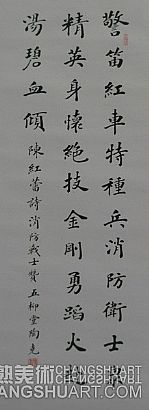 警笛紅車特種兵消防衛士
精英身懷絕技金剛勇蹈火
湯碧血傾 陳紅蕾詩消防戰士贊 五柳堂陶